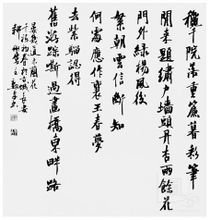 鞦千院落重簾暮彩筆
閒來題繡戶墻頭丹杏雨餘花
門外綠楊風後
絮朝雲信斷知
何處應作襄王春夢
去紫騮認得
舊游蹤嘶過畫橋東畔路
晏幾道木蘭花